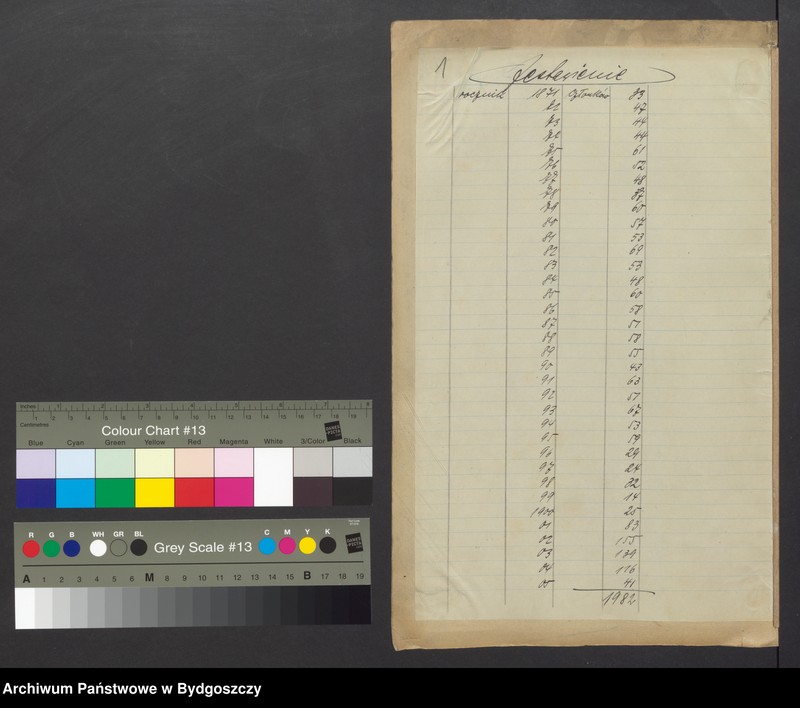 1
Zestawienie
rocznik 1871 członków 33
72 47
73 44
74 44
75 61
76 52
77 48
78
79 60
80 57
81 53
82 69
83 53
84 48
85 60
86 58
87 51
88 58
89 55
90 43
91 63
92 51
93 67
94 53
95 59
96 29
97 24
98 22
99 14
1900 25
01 83
02 155
03 139
04 116
05 41
1982
Inches 1 2 3 4 5 6 7 8
1 2 3 4 5 6 7 8 9 10 11 12 13 14 15 16 17 18 19
Centimetres
Colour Chart #13
DANES PICTA
Blue Cyan Green Yellow Red Magenta White 3/Color Black
R G B WH GR BL Grey Scale #13 C M Y K
DANES PICTA
A 1 2 3 4 5 6 M 8 9 10 11 12 13 14 15 B 17 18 19
Archiwum Państwowe w Bydgoszczy